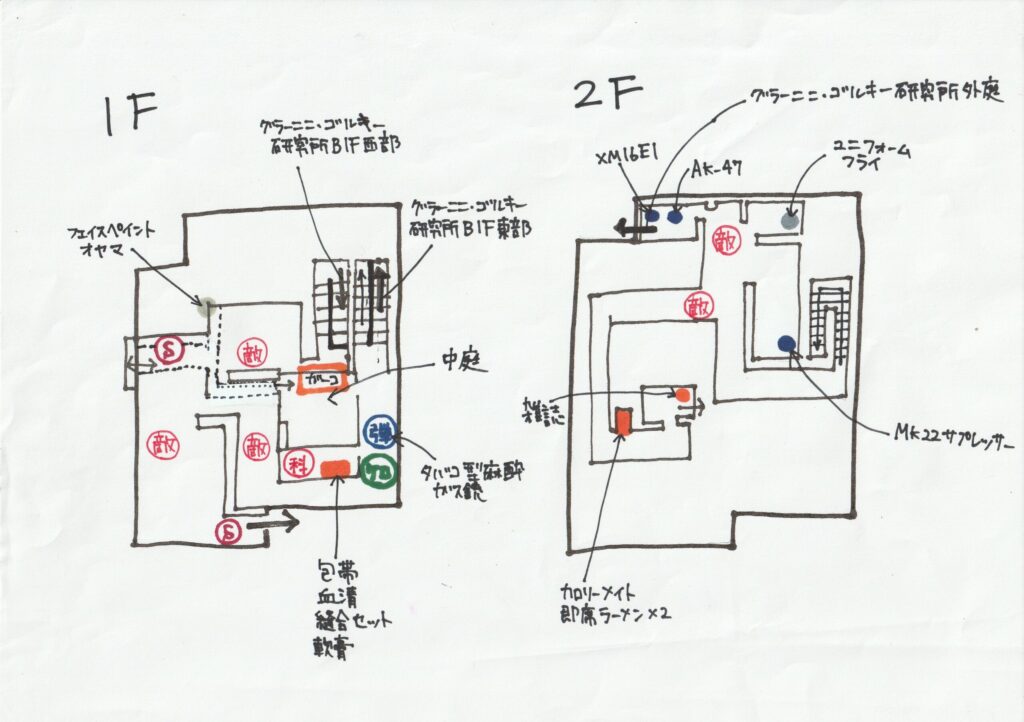 1F
グラーニニ・ゴルキー
研究所B1F西部
グラーニニ・ゴルキー
研究所B1F東部
フェイスペイント
オヤマ
S
敵
ガーコ
中庭
敵
敵
科
弾
ケロ
タバコ型麻酔
ガス銃
S
包帯
血清
縫合セット
軟膏
2F
グラーニニ・ゴルキー研究所外庭
XM16E1
AK-47
ユニフォーム
フライ
敵
敵
雑誌
MK22サプレッサー
カロリーメイト
即席ラーメン×2